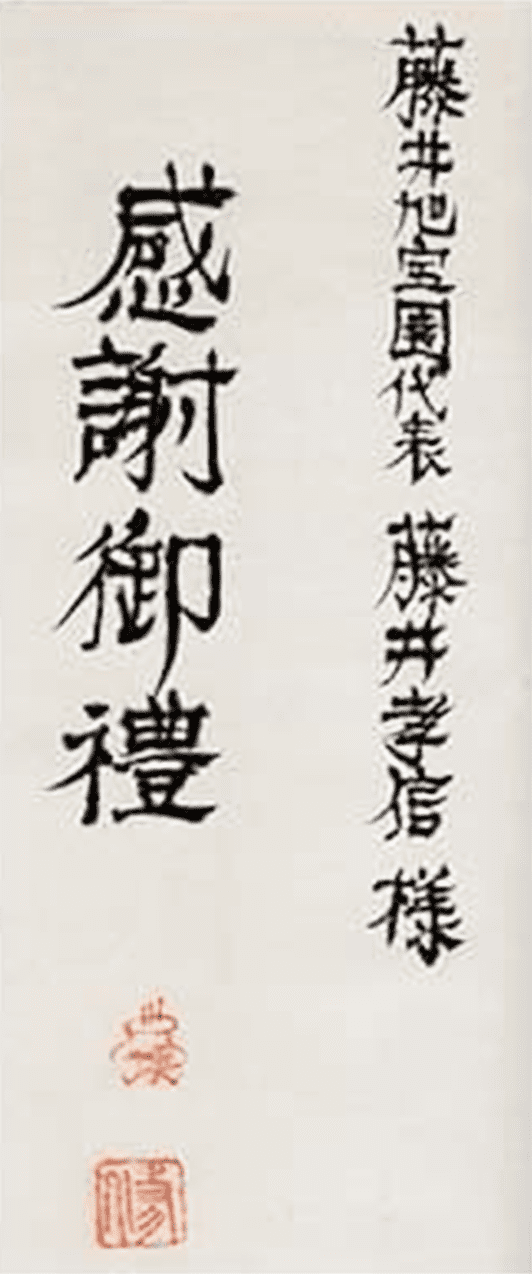 藤井旭宝園代表 藤井孝信 様
感謝御禮